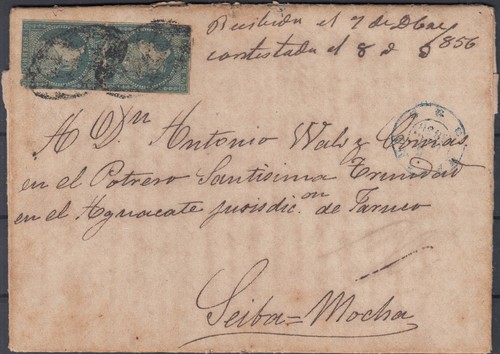 Recibida el 7 de Dbre
contestada el 8 d D 1856
A Dn Antonio Wals y Comas
en el Potrero Santisima Trinidad
en el Aguacate jurisdic.on de Jaruco
Seiba=Mocha